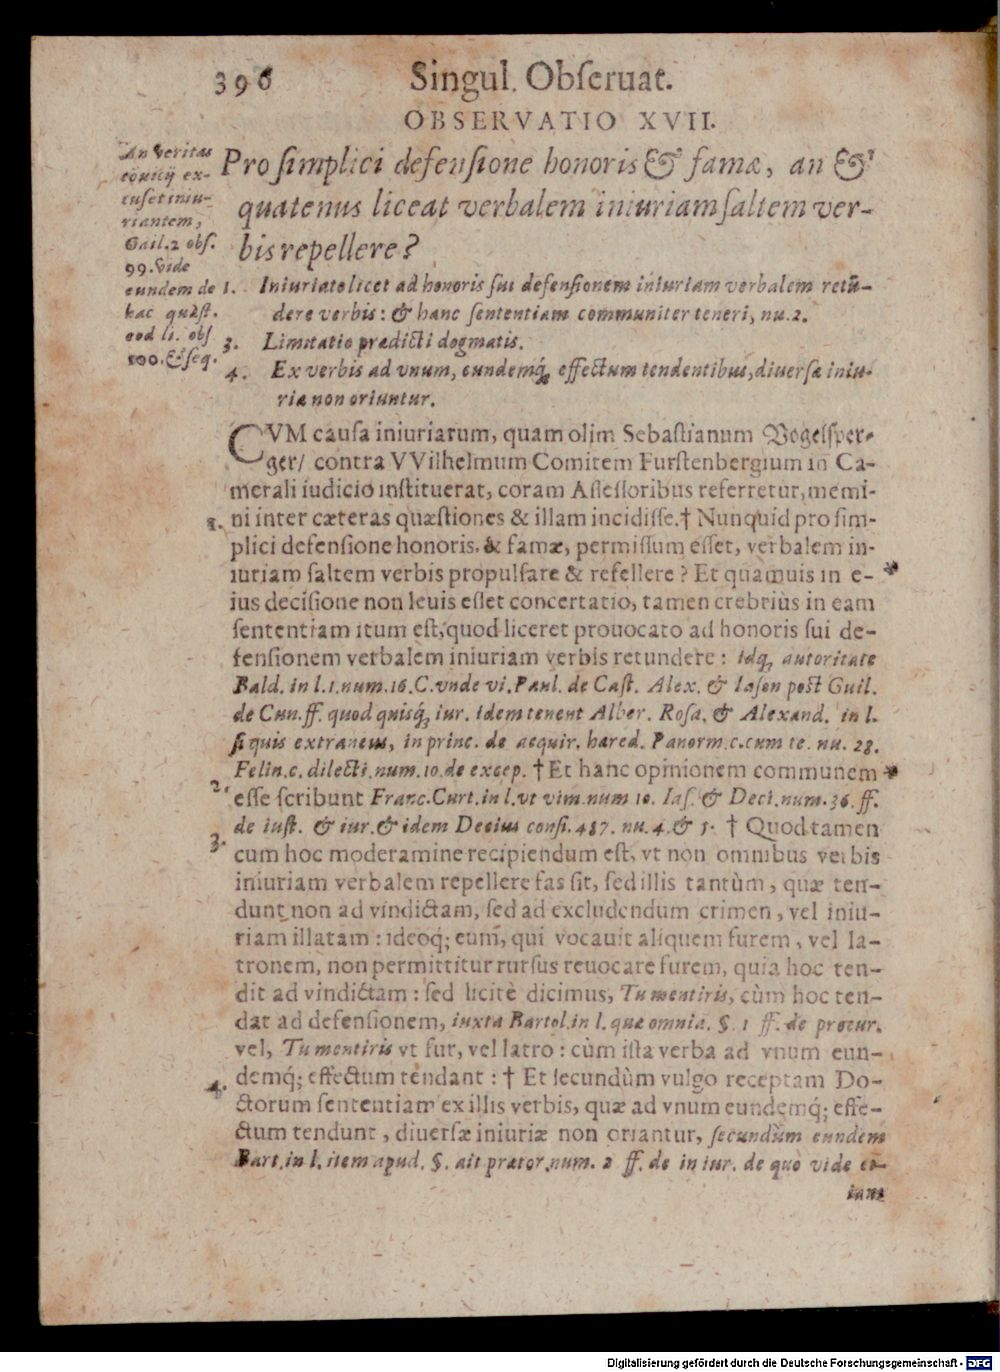 396 Singul. Obſeruat.
OBSERVATIO XVII.
An veritas
conuitij ex-
cuſet iniu-
riantem,
Gail. 2 obſ.
99. Vide
eundem de
hac quæſt.
eod li. obſ
100. & ſeq.
Pro ſimplici defenſione honoris & famæ, an &
quatenus liceat verbalem iniuriam ſaltem ver-
bis repellere?
1. Iniuriato licet ad honoris ſui defenſionem iniuriam verbalem retū-
dere verbis: & hanc ſententiam communiter teneri, nu. 2.
3. Limitatio prædicti dogmatis.
4. Ex verbis ad vnum, eundemq́ue effectum tendentibus, diuerſæ iniu-
riæ non oriuntur.
CVM cauſa iniuriarum, quam olim Sebaſtianum Vogelſper-
ger/ contra VVilhelmum Comitem Furſtenbergium in Ca-
merali iudicio inſtituerat, coram Aſſeſſoribus referretur, memi-
1. ni inter cæteras quæſtiones & illam incidiſſe. † Nunquid pro ſim-
plici defenſione honoris. & famæ, permiſſum eſſet, verbalem in-
iuriam ſaltem verbis propulſare & refellere? Et quamuis in e-
ius deciſione non leuis eſſet concertatio, tamen crebriùs in eam
ſententiam itum eſt, quod liceret prouocato ad honoris ſui de-
fenſionem verbalem iniuriam verbis retundere: idq́ autoritate
Bald. in l. 1. num. 16. C. vnde vi. Paul. de Caſt. Alex. & Iaſon poſt Guil.
de Cun. ff. quod quisq́ iur. idem tenent Alber. Roſa. & Alexand. in l.
ſi quis extraneus, in princ. de acquir. hared. Panorm. c. cum te. nu. 28.
Felin. c. dilecti. num. 10. de excep. † Et hanc opinionem communem
2. eſſe ſcribunt Franc. Curt. in l. vt vim. num 10. Iaſ. & Deci. num. 36. ff.
de iuſt. & iur. & idem Decius conſi. 487. nu. 4. & 5. † Quod tamen
3. cum hoc moderamine recipiendum eſt, vt non omnibus verbis
iniuriam verbalem repellere fas ſit, ſed illis tantùm, quæ ten-
dunt non ad vindictam, ſed ad excludendum crimen, vel iniu-
riam illatam: ideoq́; eum, qui vocauit aliquem furem, vel la-
tronem, non permittitur rurſus reuocare furem, quia hoc ten-
dit ad vindictam: ſed licitè dicimus, Tu mentiris, cùm hoc ten-
dat ad defenſionem, iuxta Bartol. in l. quæ omnia. §. 1 ff. de procur.
vel, Tu mentiris vt fur, vel latro: cùm iſta verba ad vnum eun-
demq́; effectum tendant: † Et ſecundùm vulgo receptam Do-
4. ctorum ſententiam ex illis verbis, quæ ad vnum eundemq́; effe-
ctum tendunt, diuerſæ iniuriæ non oriantur, ſecundùm eundem
Bart. in l. item apud. §. ait prætor. num. 2 ff. de iniur. de quo vide et-
iam
Digitalisierung gefördert durch die Deutsche Forschungsgemeinschaft - DFG